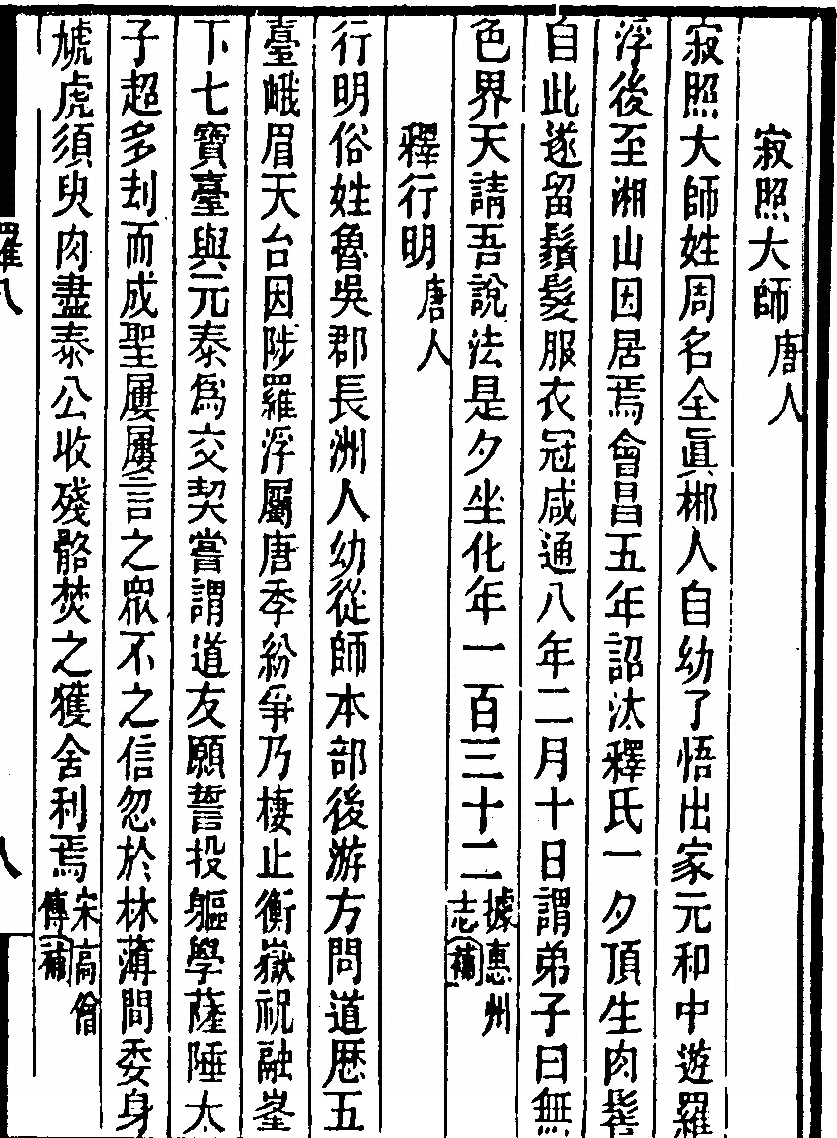 寂照大師唐人
寂照大師姓周名全眞郴人自幼了悟出家元和中遊羅
浮後至湘山因居焉會昌五年詔汰釋氏一夕頂生肉髻
自此遂留鬚髮服衣冠咸通八年二月十日謂弟子曰無
色界天請吾說法是夕坐化年一百三十二據惠州志補
釋行明唐人
行明俗姓魯吳郡長洲人幼從師本部後游方問道歷五
臺峨眉天台因陟羅浮屬唐季紛爭乃棲止衡嶽祝融峯
下七寶臺與元泰爲交契嘗謂道友願誓投軀學薩埵太
子超多刦而成聖屢屢言之眾不之信忽於林薄間委身
虓虎須臾肉盡泰公收殘骼焚之獲舍利焉宋高僧傳補
羅八
八